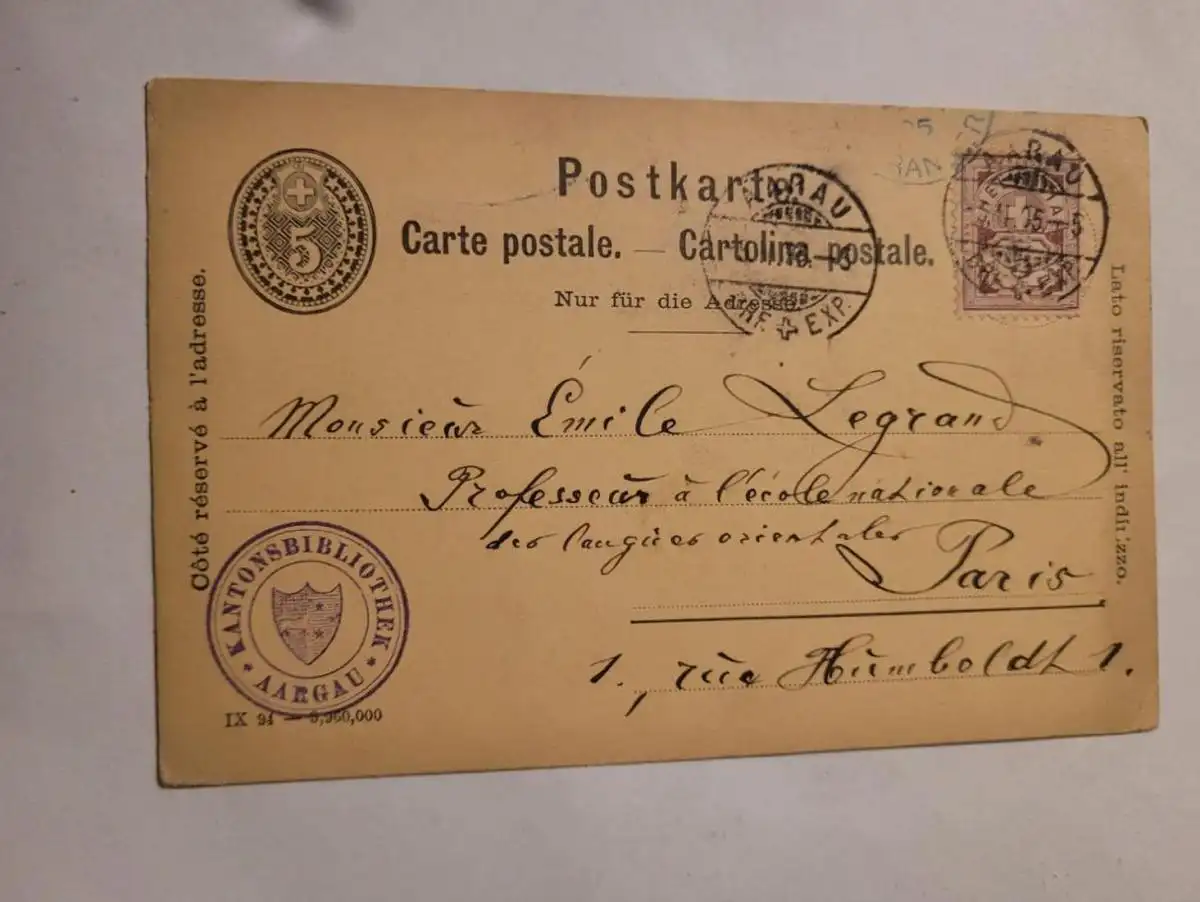 Postkarte.
Carte postale. — Cartolina postale.
Nur für die Adresse.
5
AARAU
EXP.
AARAU
Côté réservé à l'adresse.
Lato riservato all' indirizzo.
Monsieur Émile Legrand
Professeur à l'école nationale
des langues orientales
Paris
1, rue Humboldt 1.
KANTONSBIBLIOTHEK
AARGAU
IX 94 —